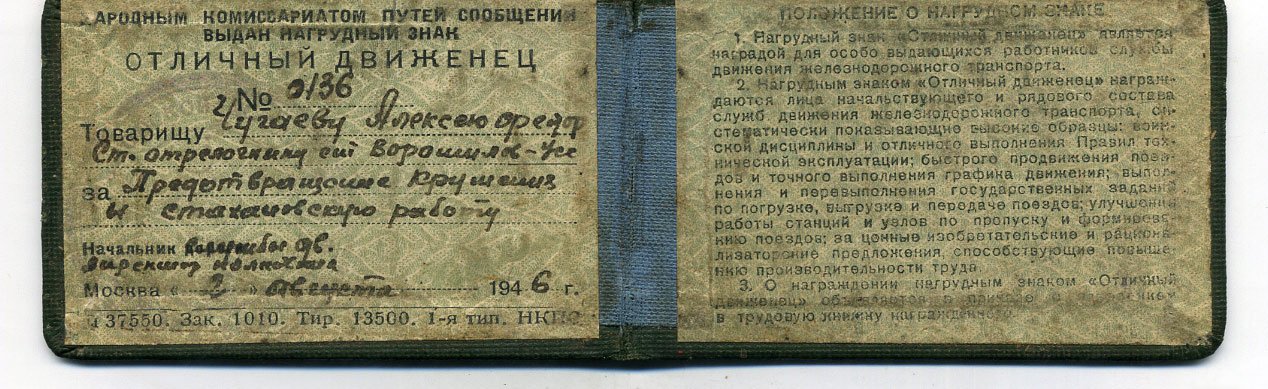 НАРОДНЫМ КОМИССАРИАТОМ ПУТЕЙ СООБЩЕНИЯ
ВЫДАН НАГРУДНЫЙ ЗНАК
ОТЛИЧНЫЙ ДВИЖЕНЕ�ц
№ 0136
Товарищу Чугаеву Алексею
Ст. стрелочнику ст Ворошилов-Усс
за Предотвращение крушения
и стахановскую работу
Начальник службы дв.
Москва « 2 » августа 1946 г.
37550. Зак. 1010. Тир. 13500. 1-я тип. НКПС
ПОЛОЖЕНИЕ О НАГРУДНОМ ЗНАКЕ
1. Нагрудный знак «Отличный движенец» является
наградой для особо выдающихся работников службы
движения железнодорожного транспорта.
2. Нагрудным знаком «Отличный движенец» награж-
даются лица начальствующего и рядового состава
служб движения железнодорожного транспорта, си-
стематически показывающие высокие образцы: воин-
ской дисциплины и отличного выполнения Правил тех-
нической эксплуатации; быстрого продвижения поез-
дов и точного выполнения графика движения; выпол-
нения и перевыполнения государственных заданий
по погрузке, выгрузке и передаче поездов; улучшения
работы станций и узлов по пропуску и формирова-
нию поездов; за ценные изобретательские и рациона-
лизаторские предложения, способствующие повыше-
нию производительности труда
3. О награждении нагрудным знаком «Отличный
движенец» объявляется в приказе и
в трудовую книжку награжденного.